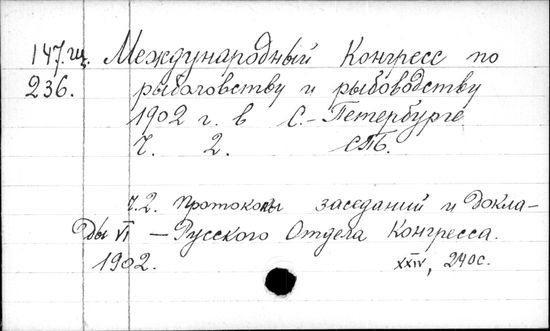 147.щ. Международный Конгресс по
236. рыболовству и рыбоводству
1902 г. в С.-Петербурге
Ч. 2. СПБ.
Ч.2. Протоколы заседаний и Докла-
ды VI – Русского Отдела Конгресса.
1902. XXIV, 240 с.